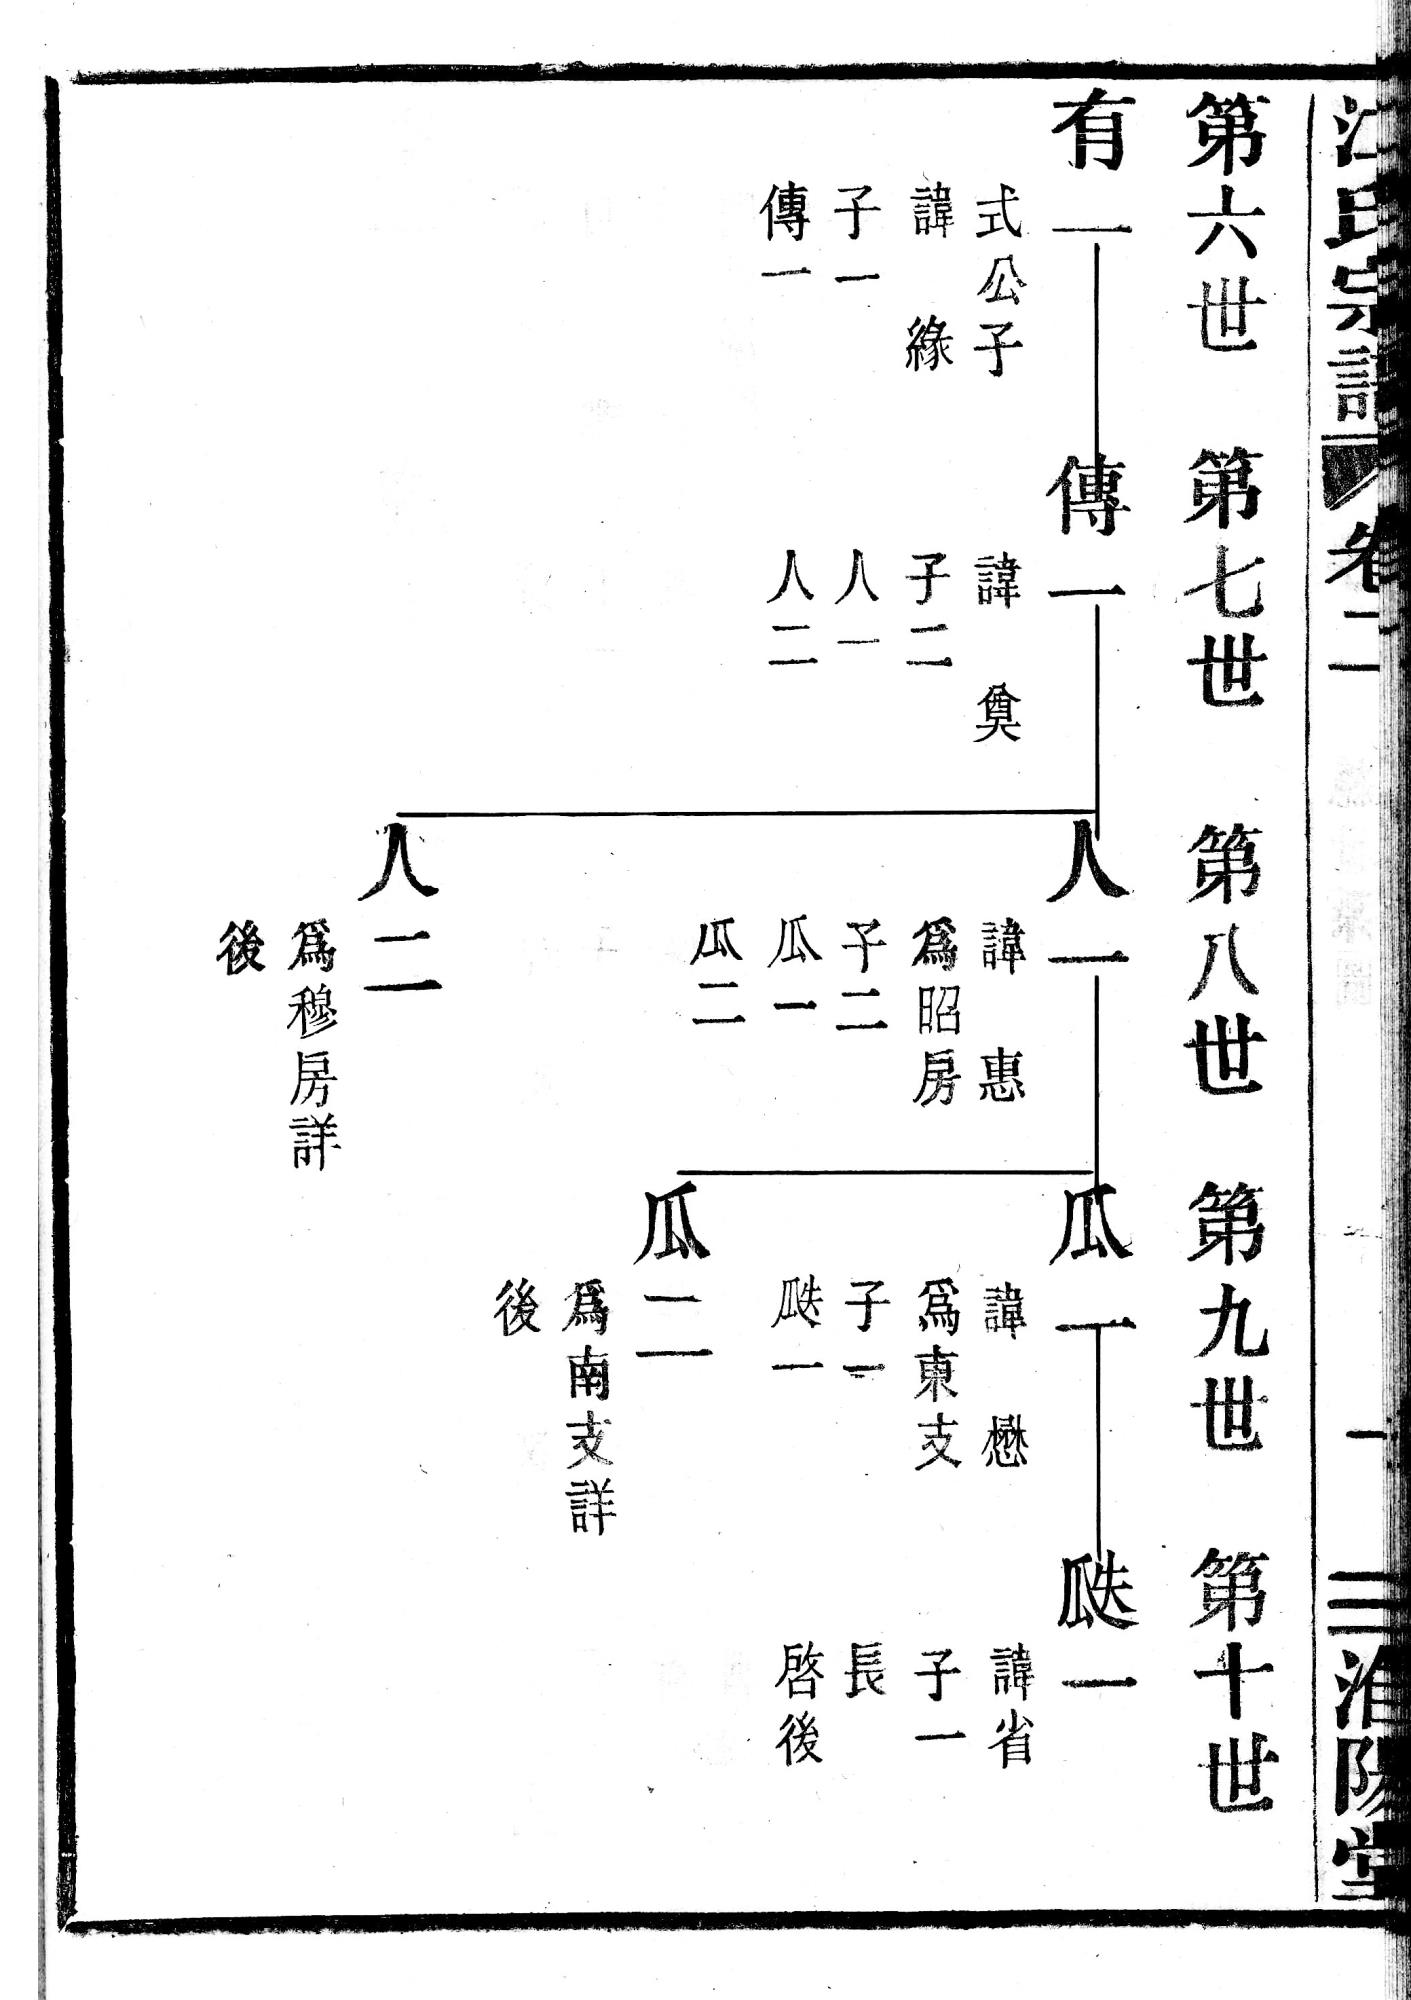 江氏宗譜
卷二
一
三
淮陽堂
第六世
第七世
第八世
第九世
第十世
有一
式公子
諱 緣
子一
傳一
傳一
諱 奠
子二
人一
人二
人一
諱 惠
爲昭房
子二
瓜一
瓜二
人二
爲穆房詳
後
瓜一
諱 懋
爲東支
子一
瓞一
瓜二
爲南支詳
後
瓞一
諱省
子一
長
啓後